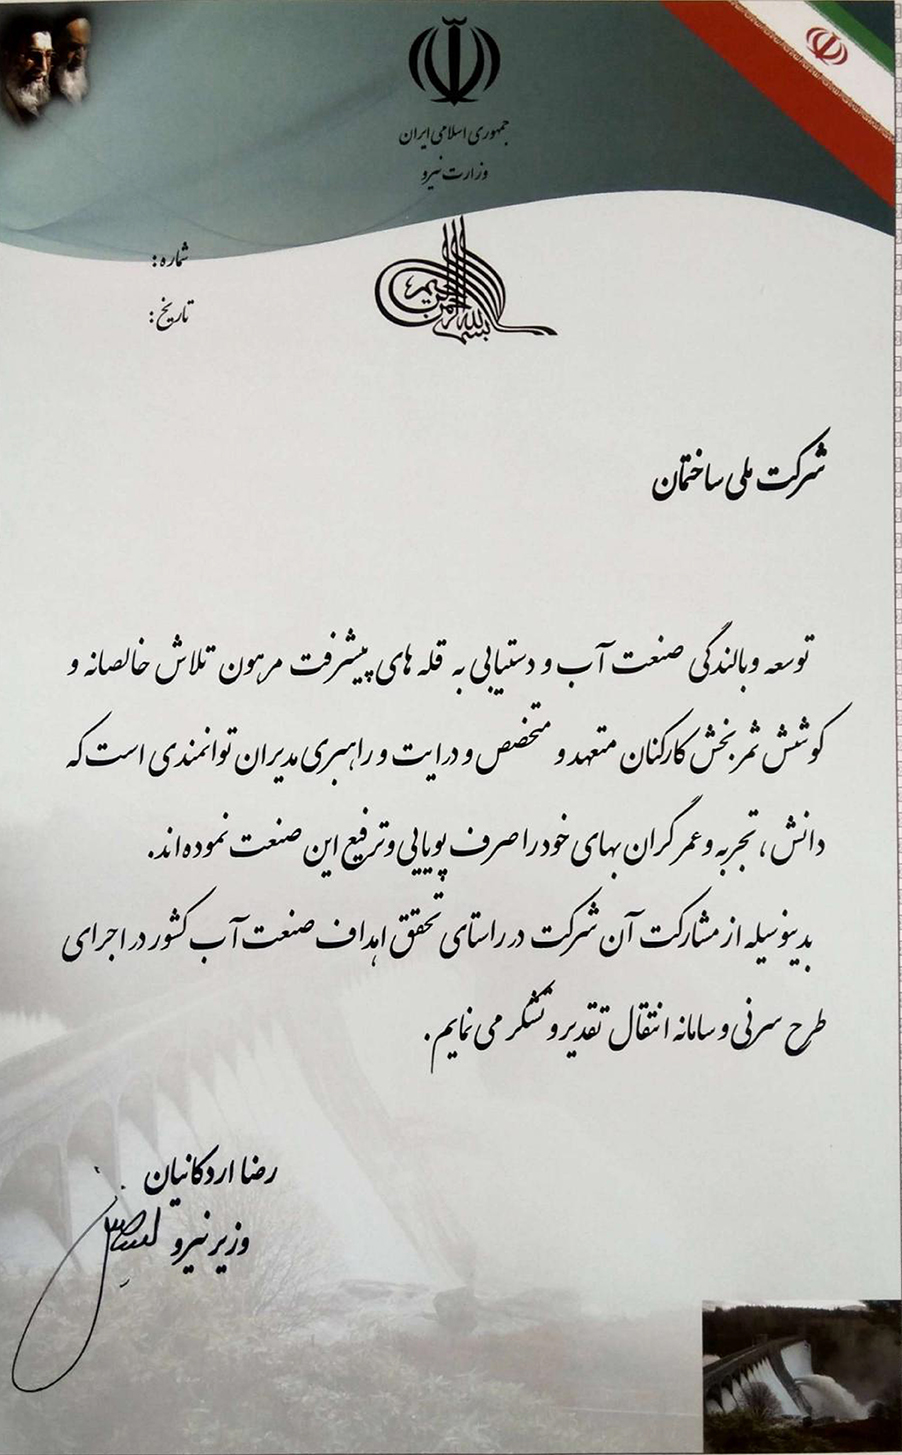 جمهوری اسلامی ایران
وزارت نیرو
شماره:
تاریخ:
بسم الله الرحمن الرحیم
شرکت ملی ساختمان
توسعه و بالندگی صنعت آب و دستیابی به قله های پیشرفت مرهون تلاش خالصانه و
کوشش ثمربخش کارکنان متعهد و متخصص و درایت و راهبری مدیران توانمندی است که
دانش، تجربه و عمر گران بهای خود را صرف پویایی و ترفیع این صنعت نموده اند.
بدینوسیله از مشارکت آن شرکت در راستای تحقق اهداف صنعت آب کشور در اجرای
طرح سرنی و سامانه انتقال تقدیر و تشکر می نمایم.
رضا اردکانیان
وزیر نیرو